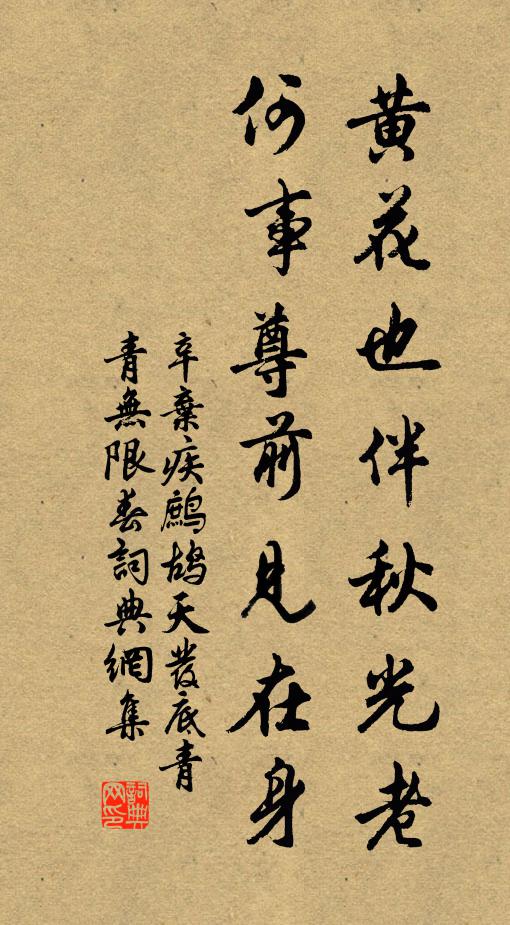 黃花也伴秋光老
何事尊前見在身
辛棄疾鷓鴣天發底青
青無限春詞典網集
詞典
网印